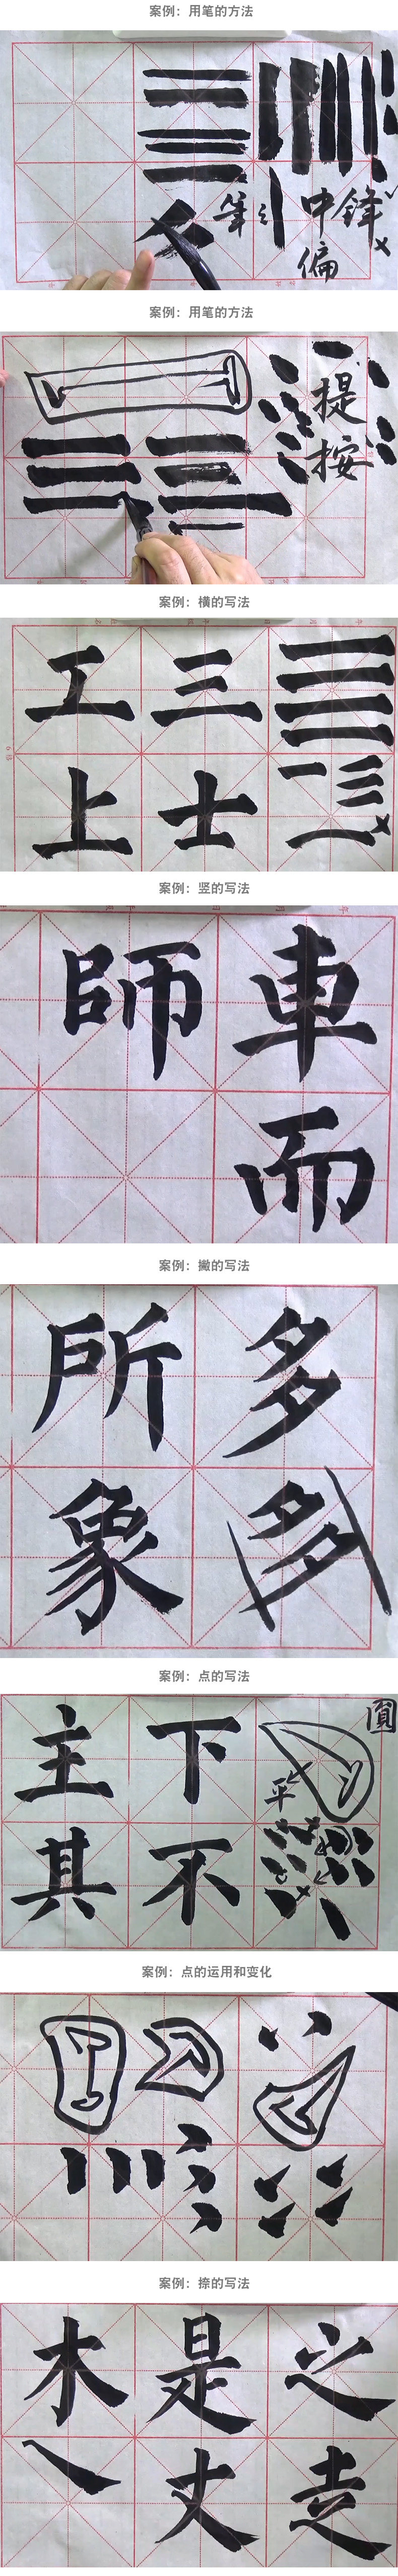 案例：用笔的方法
笔
中锋
偏
案例：用笔的方法
提
按
案例：横的写法
工 三
上 士
案例：竖的写法
師 車
而
案例：撇的写法
所 多
象 多
案例：点的写法
圓
主 下
平
其 不
案例：点的运用和变化
案例：捺的写法
木 是 之
丈 走